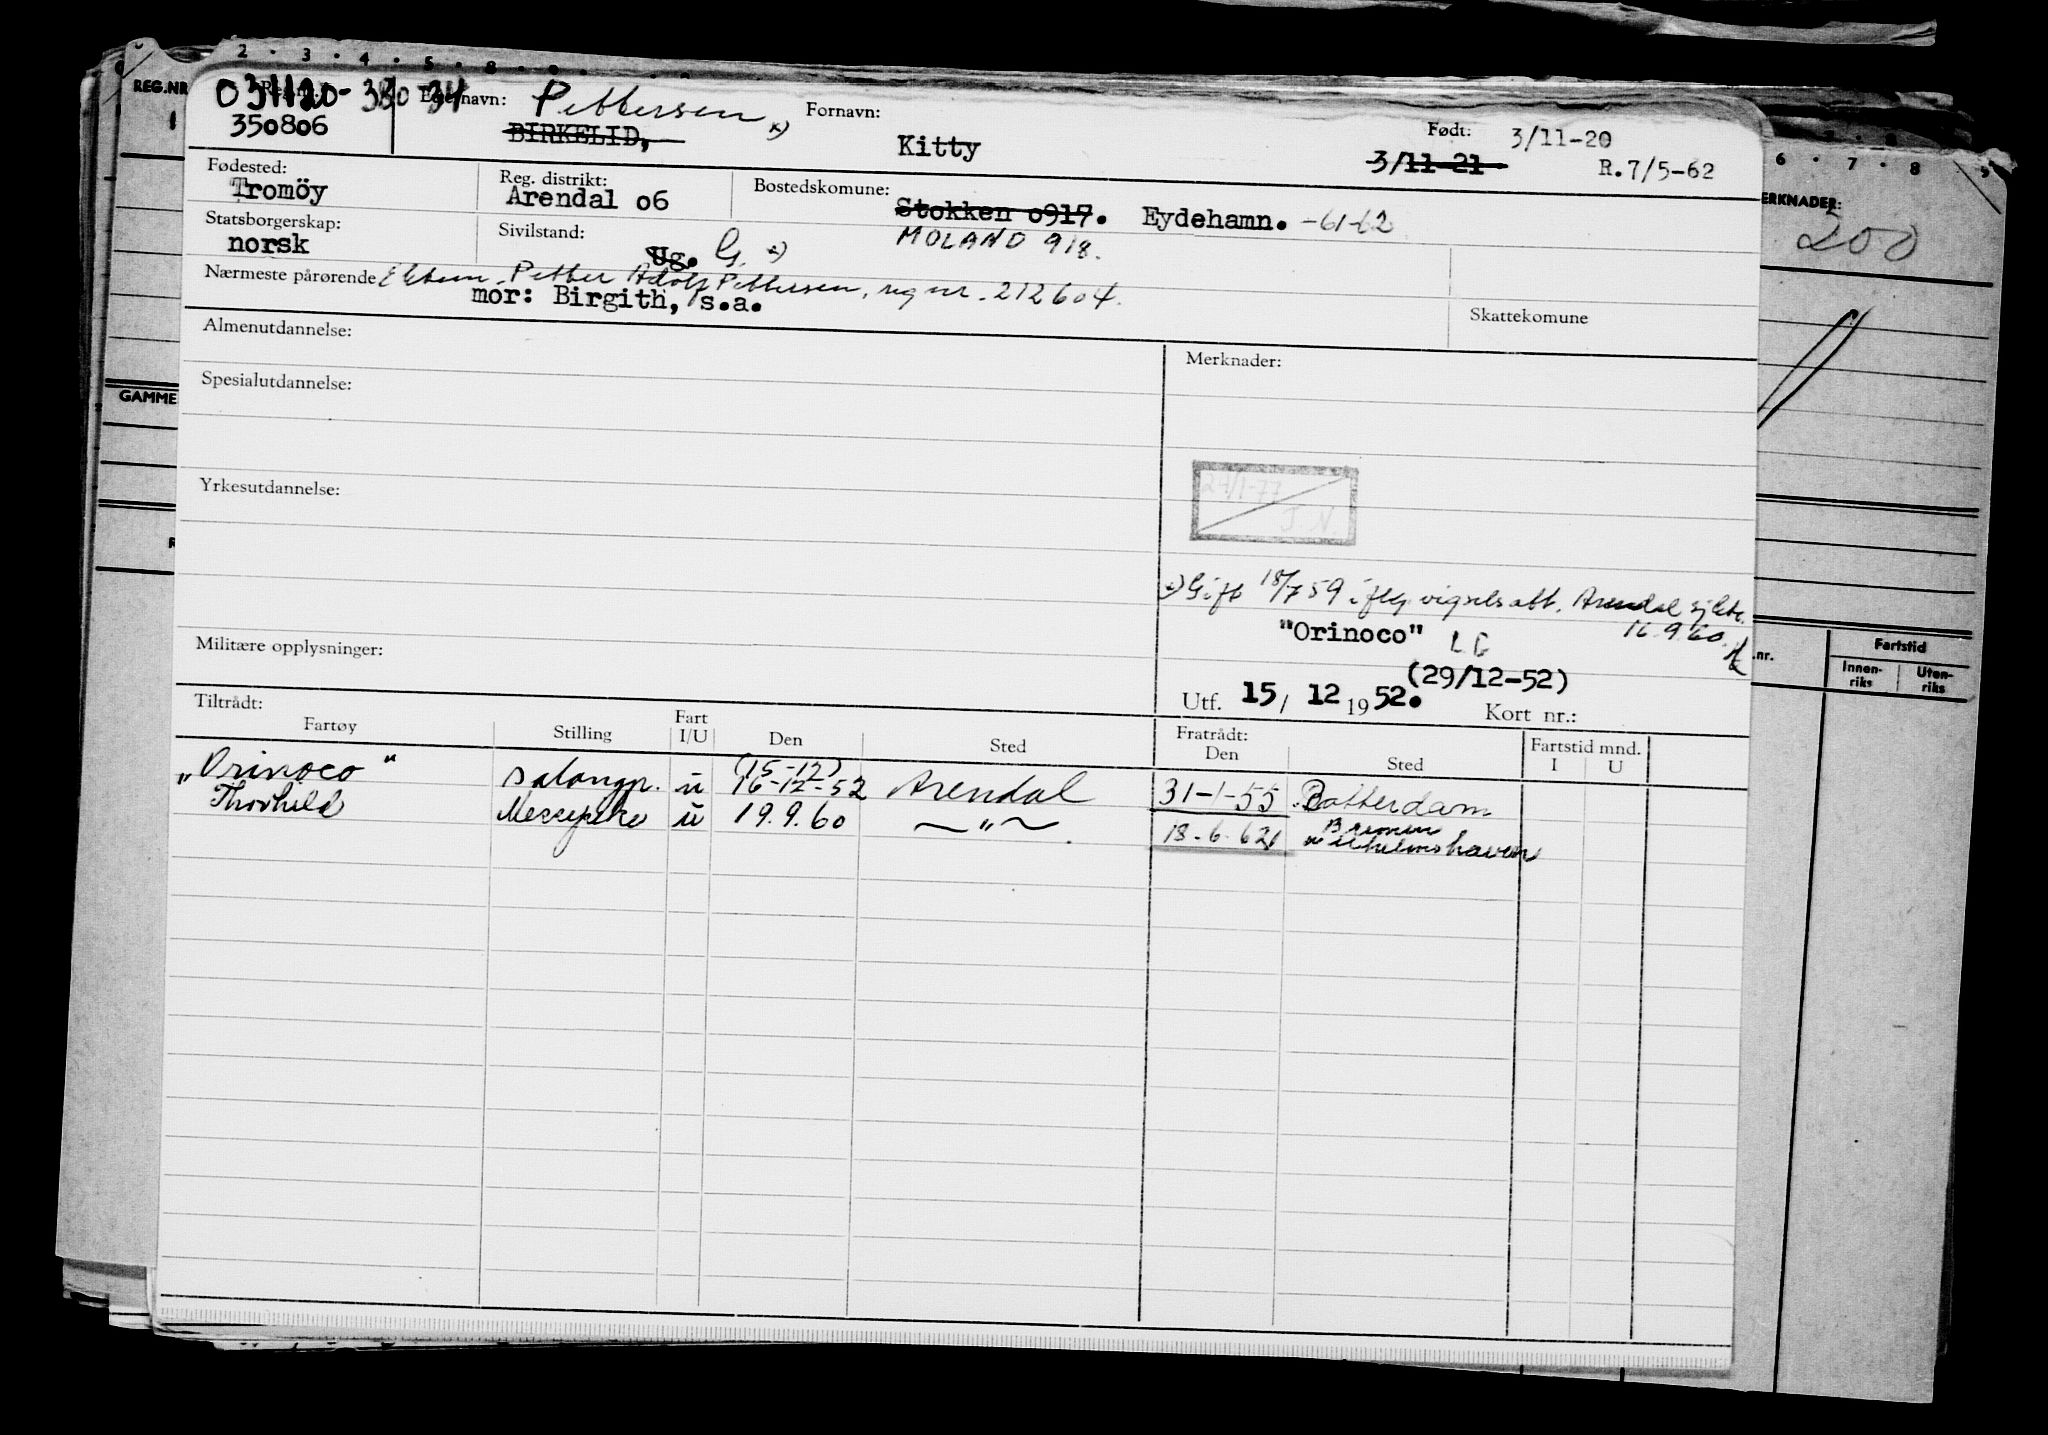 2 · 3 · 4 · 5 · 8 · 9
REG.NR
031120-
350806
Etternavn: Pettersen x)
BIRKELID,
Fornavn:
Kitty
Født: 3/11-20
3/11-21
R.7/5-62
6 · 7 · 8
Fødested:
Tromöy
Reg. distrikt:
Arendal o6
Bostedskomune:
Stokken o917. Eydehamn. -61-62
MOLAND 918.
ERKNADER:
200
Statsborgerskap:
norsk
Sivilstand:
Ug. G. x)
Nærmeste pårørende Ektem. Petter Adolf Pettersen, reg nr. 212604.
mor: Birgith, s.a.
Skattekomune
Almenutdannelse:
Merknader:
Spesialutdannelse:
GAMME
Yrkesutdannelse:
27/1-77
J.N.
x) Gift 18/7 59 iflg. vigselsatt. Arendal sjktr.
16.9.60.
"Orinoco" LG
(29/12-52)
Militære opplysninger:
Utf. 15/ 12 1952.
Kort nr.:
.nr.
Fartstid
Innen-
riks
Uten-
riks
Tiltrådt:
Fartøy
Stilling
Fart
I/U
Den
Sted
Fratrådt:
Den
Sted
Fartstid mnd.
I U
„Orinoco" salongp. u (15-12) 16-12-52 Arendal 31-1-55 Rotterdam
Thorhild Messepike u 19.9.60 —"— 18-6-62 Bremen
Wilhelmshaven